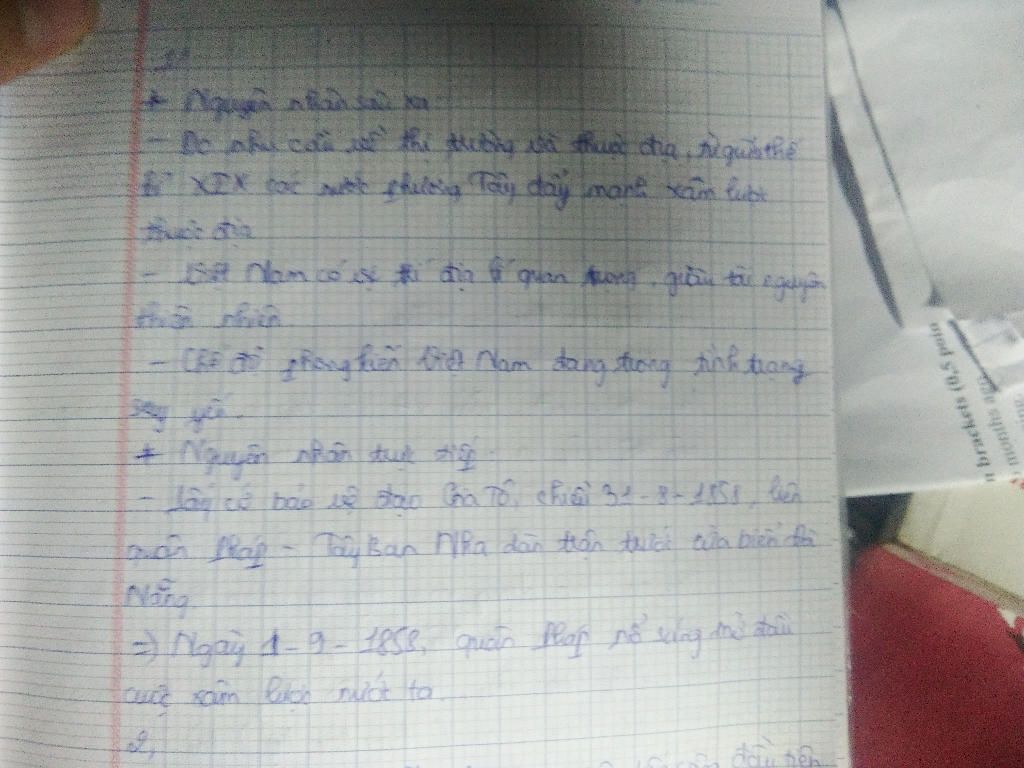 * Nguyên nhân sâu xa
- Do nhu cầu về thị trường và thuộc địa, từ giữa thế
kỉ XIX các nước phương Tây đẩy mạnh xâm lược
thuộc địa
- Việt Nam có vị trí địa lí quan trọng, giàu tài nguyên
thiên nhiên
- Chế độ phong kiến Việt Nam đang trong tình trạng
suy yếu.
* Nguyên nhân trực tiếp
- Lấy cớ bảo vệ đạo Gia Tô, chiều 31-8-1858, liên
quân Pháp - Tây Ban Nha dàn trận trước cửa biển Đà
Nẵng.
=> Ngày 1-9-1858, quân Pháp nổ súng mở đầu
cuộc xâm lược nước ta.
2,
đầu tiên
brackets (0.5 poin
months ago